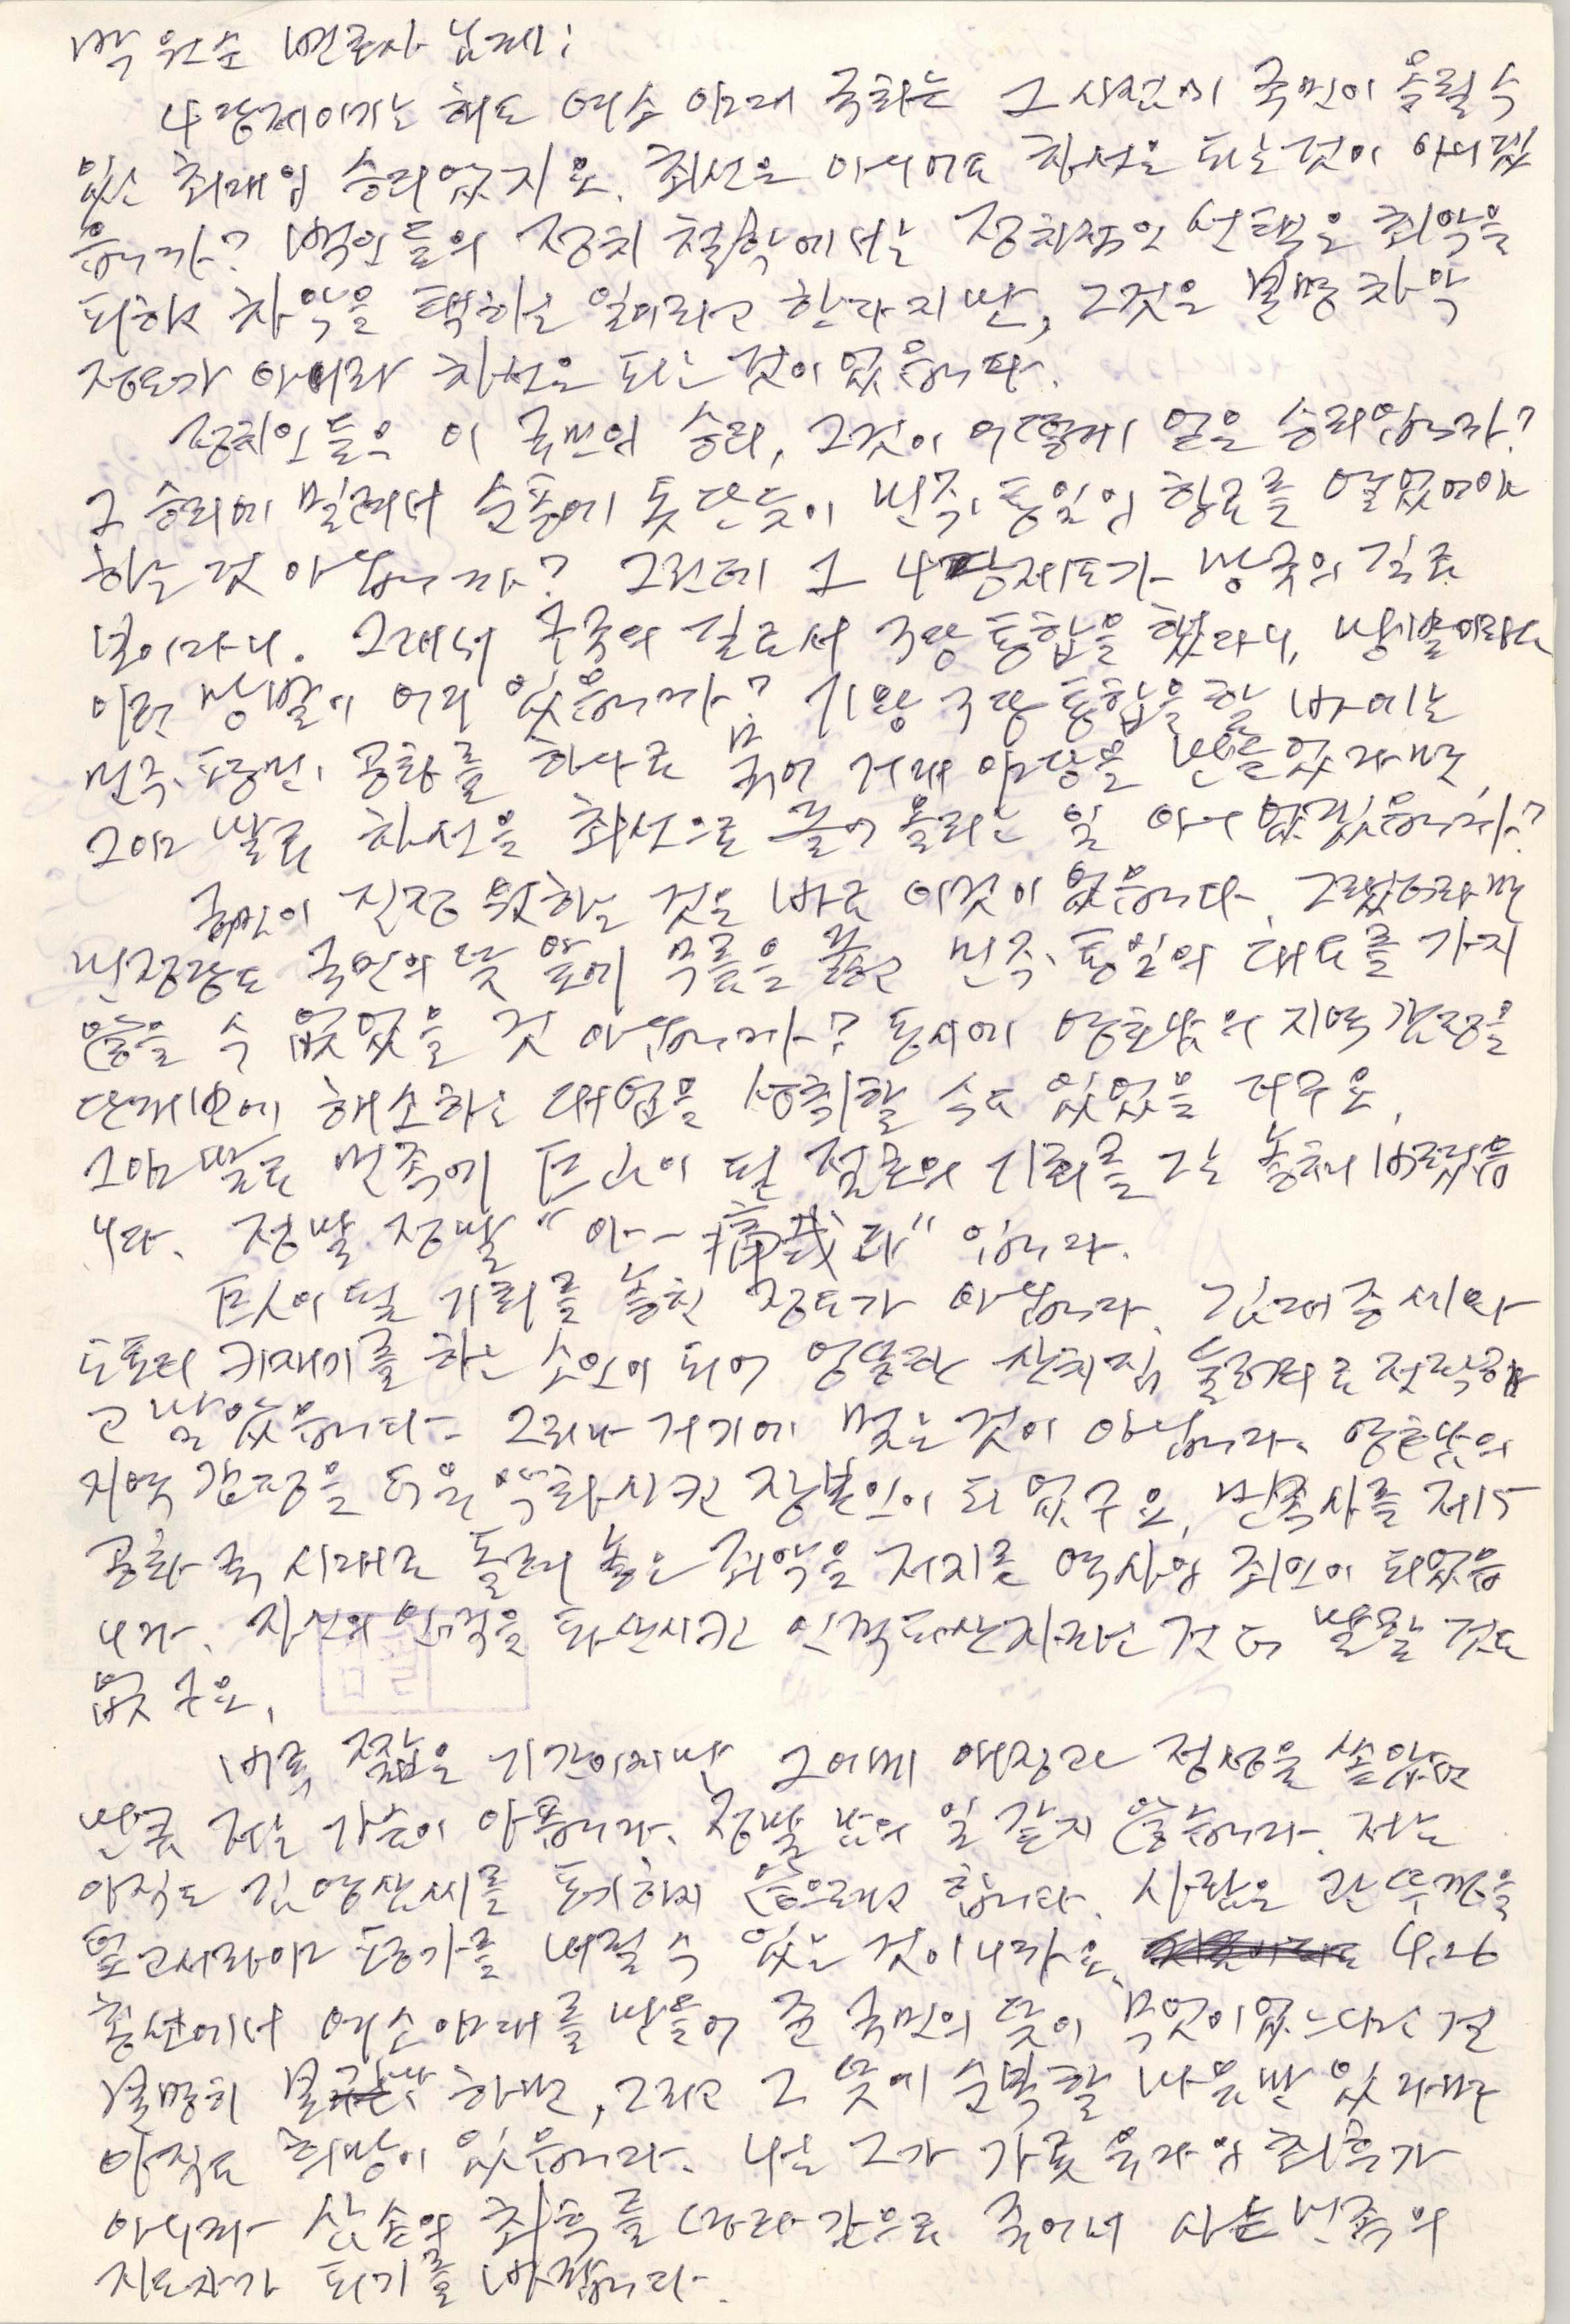 박원순 변호사 님께;
4당제이기는 해도 여소 야대 국회는 그 시점에 국민이 올릴 수
있는 최대의 승리였지요. 최선은 아니어도 차선은 되는 것이 아니겠
습니까? 백인들의 정치 철학에서는 정치적인 선택은 최악을
피하고 차악을 택하는 일이라고 한다지만, 그것은 분명 차악
정도가 아니라 차선은 되는 것이었습니다.
정치인들은 이 국민의 승리, 그것이 어떻게 얻은 승리입니까?
그 승리에 밀려서 순풍에 돛단듯이 민주, 통일의 항로를 열었어야
하는 것 아닙니까? 그런데 그 4당제도가 망국의 길로
보이다니. 그래서 구국의 길로서 3당 통합을 했다니, 망발이라도
이런 망발이 어디 있습니까? 기왕 3당 통합을 할 바에는
민주, 평민, 공화를 하나로 묶어 거대 야당을 만들었다면,
그야 말로 차선을 최선으로 끌어 올리는 일 아니었겠습니까?
국민이 진정 원하는 것은 바로 이것이었습니다. 그랬더라면
민정당도 국민의 뜻 앞에 무릎을 꿇고 민주, 통일의 대도를 가지
않을 수 없었을 것 아닙니까? 동시에 영호남의 지역 감정을
단번에 해소하는 대업을 성취할 수도 있었을 터구요.
그야 말로 민족에 巨人이 될 절호의 기회를 그는 놓쳐 버렸습
니다. 정말 정말 “아— 痛哉라” 입니다.
巨人이 될 기회를 놓친 정도가 아닙니다. 김대중씨와
도토리 키재기를 하는 소인이 되어 엉뚱한 산허리 놀이터로 전락하
고 말았습니다. 그러나 거기에 멎는 것이 아닙니다. 영호남의
지역 감정을 더욱 악화시킨 장본인이 되었구요, 민족사를 제5
공화국 시대로 돌려 놓은 죄악을 저지른 역사의 죄인이 되었습
니다. 자신의 인격을 파산시킨 인격파산자라는 건 더 말할 것도
없구요.
비록 짧은 기간이지만 그에게 애정과 정성을 쏟았던
만큼 저는 가슴이 아픕니다. 정말 남의 일 같지 않습니다. 저는
아직도 김영삼씨를 포기하지 않으려고 합니다. 사람은 관뚜껑을
덮고서라야 평가를 내릴 수 있는 것이니까요. 4.26
총선에서 여소야대를 만들어 준 국민의 뜻이 무엇이었느냐는 걸
분명히 하면, 그리고 그 뜻에 순복할 마음만 있다면
아직도 희망이 있습니다. 나는 그가 가롯 유다의 최후가
아니라 삼손의 최후를 따라감으로 죽어서 사는 민족의
지도자가 되기를 바랍니다.